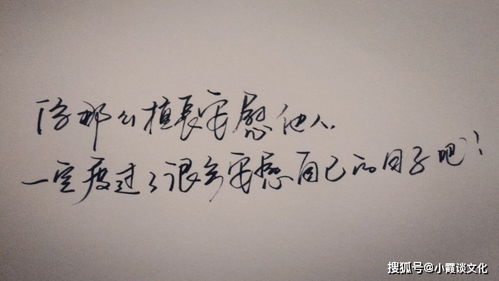 你那么擅长安慰他人,
一定度过了很多安慰自己的日子吧!
搜狐号@小霞谈文化